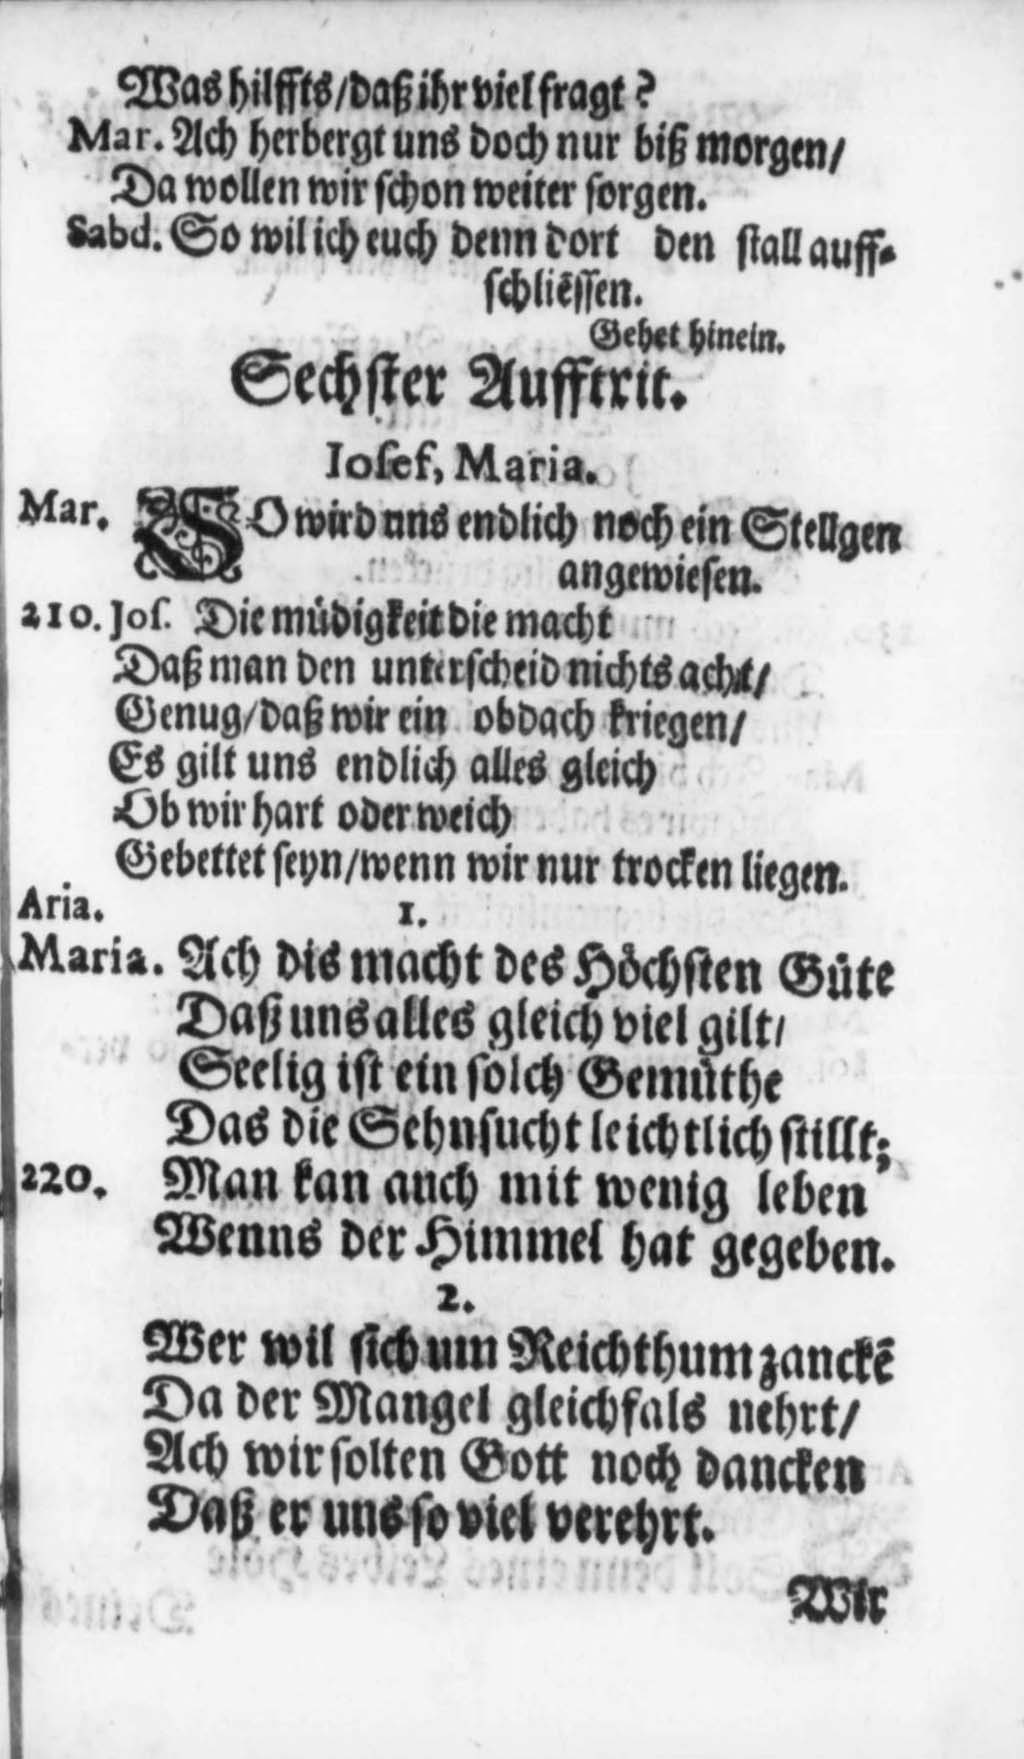 Was hilffts/daß ihr viel fragt?
Mar. Ach herbergt uns doch nur biß morgen/
Da wollen wir schon weiter sorgen.
Sabd. So wil ich euch denn dort den stall auff-
schliessen.
Gehet hinein.
Sechster Aufftrit.
Iosef, Maria.
Mar. SO wird uns endlich noch ein Stellgen
angewiesen.
210. Jos. Die müdigkeit die macht
Daß man den unterscheid nichts acht/
Genug/daß wir ein obdach kriegen/
Es gilt uns endlich alles gleich
Ob wir hart oder weich
Gebettet seyn/wenn wir nur trocken liegen.
Aria. 1.
Maria. Ach dis macht des Höchsten Güte
Daß uns alles gleich viel gilt/
Seelig ist ein solch Gemüthe
Das die Sehnsucht leichtlich stillt;
220. Man kan auch mit wenig leben
Wenns der Himmel hat gegeben.
2.
Wer wil sich um Reichthum zanckē
Da der Mangel gleichfals nehrt/
Ach wir solten Gott noch dancken
Daß er uns so viel verehrt.
Wir